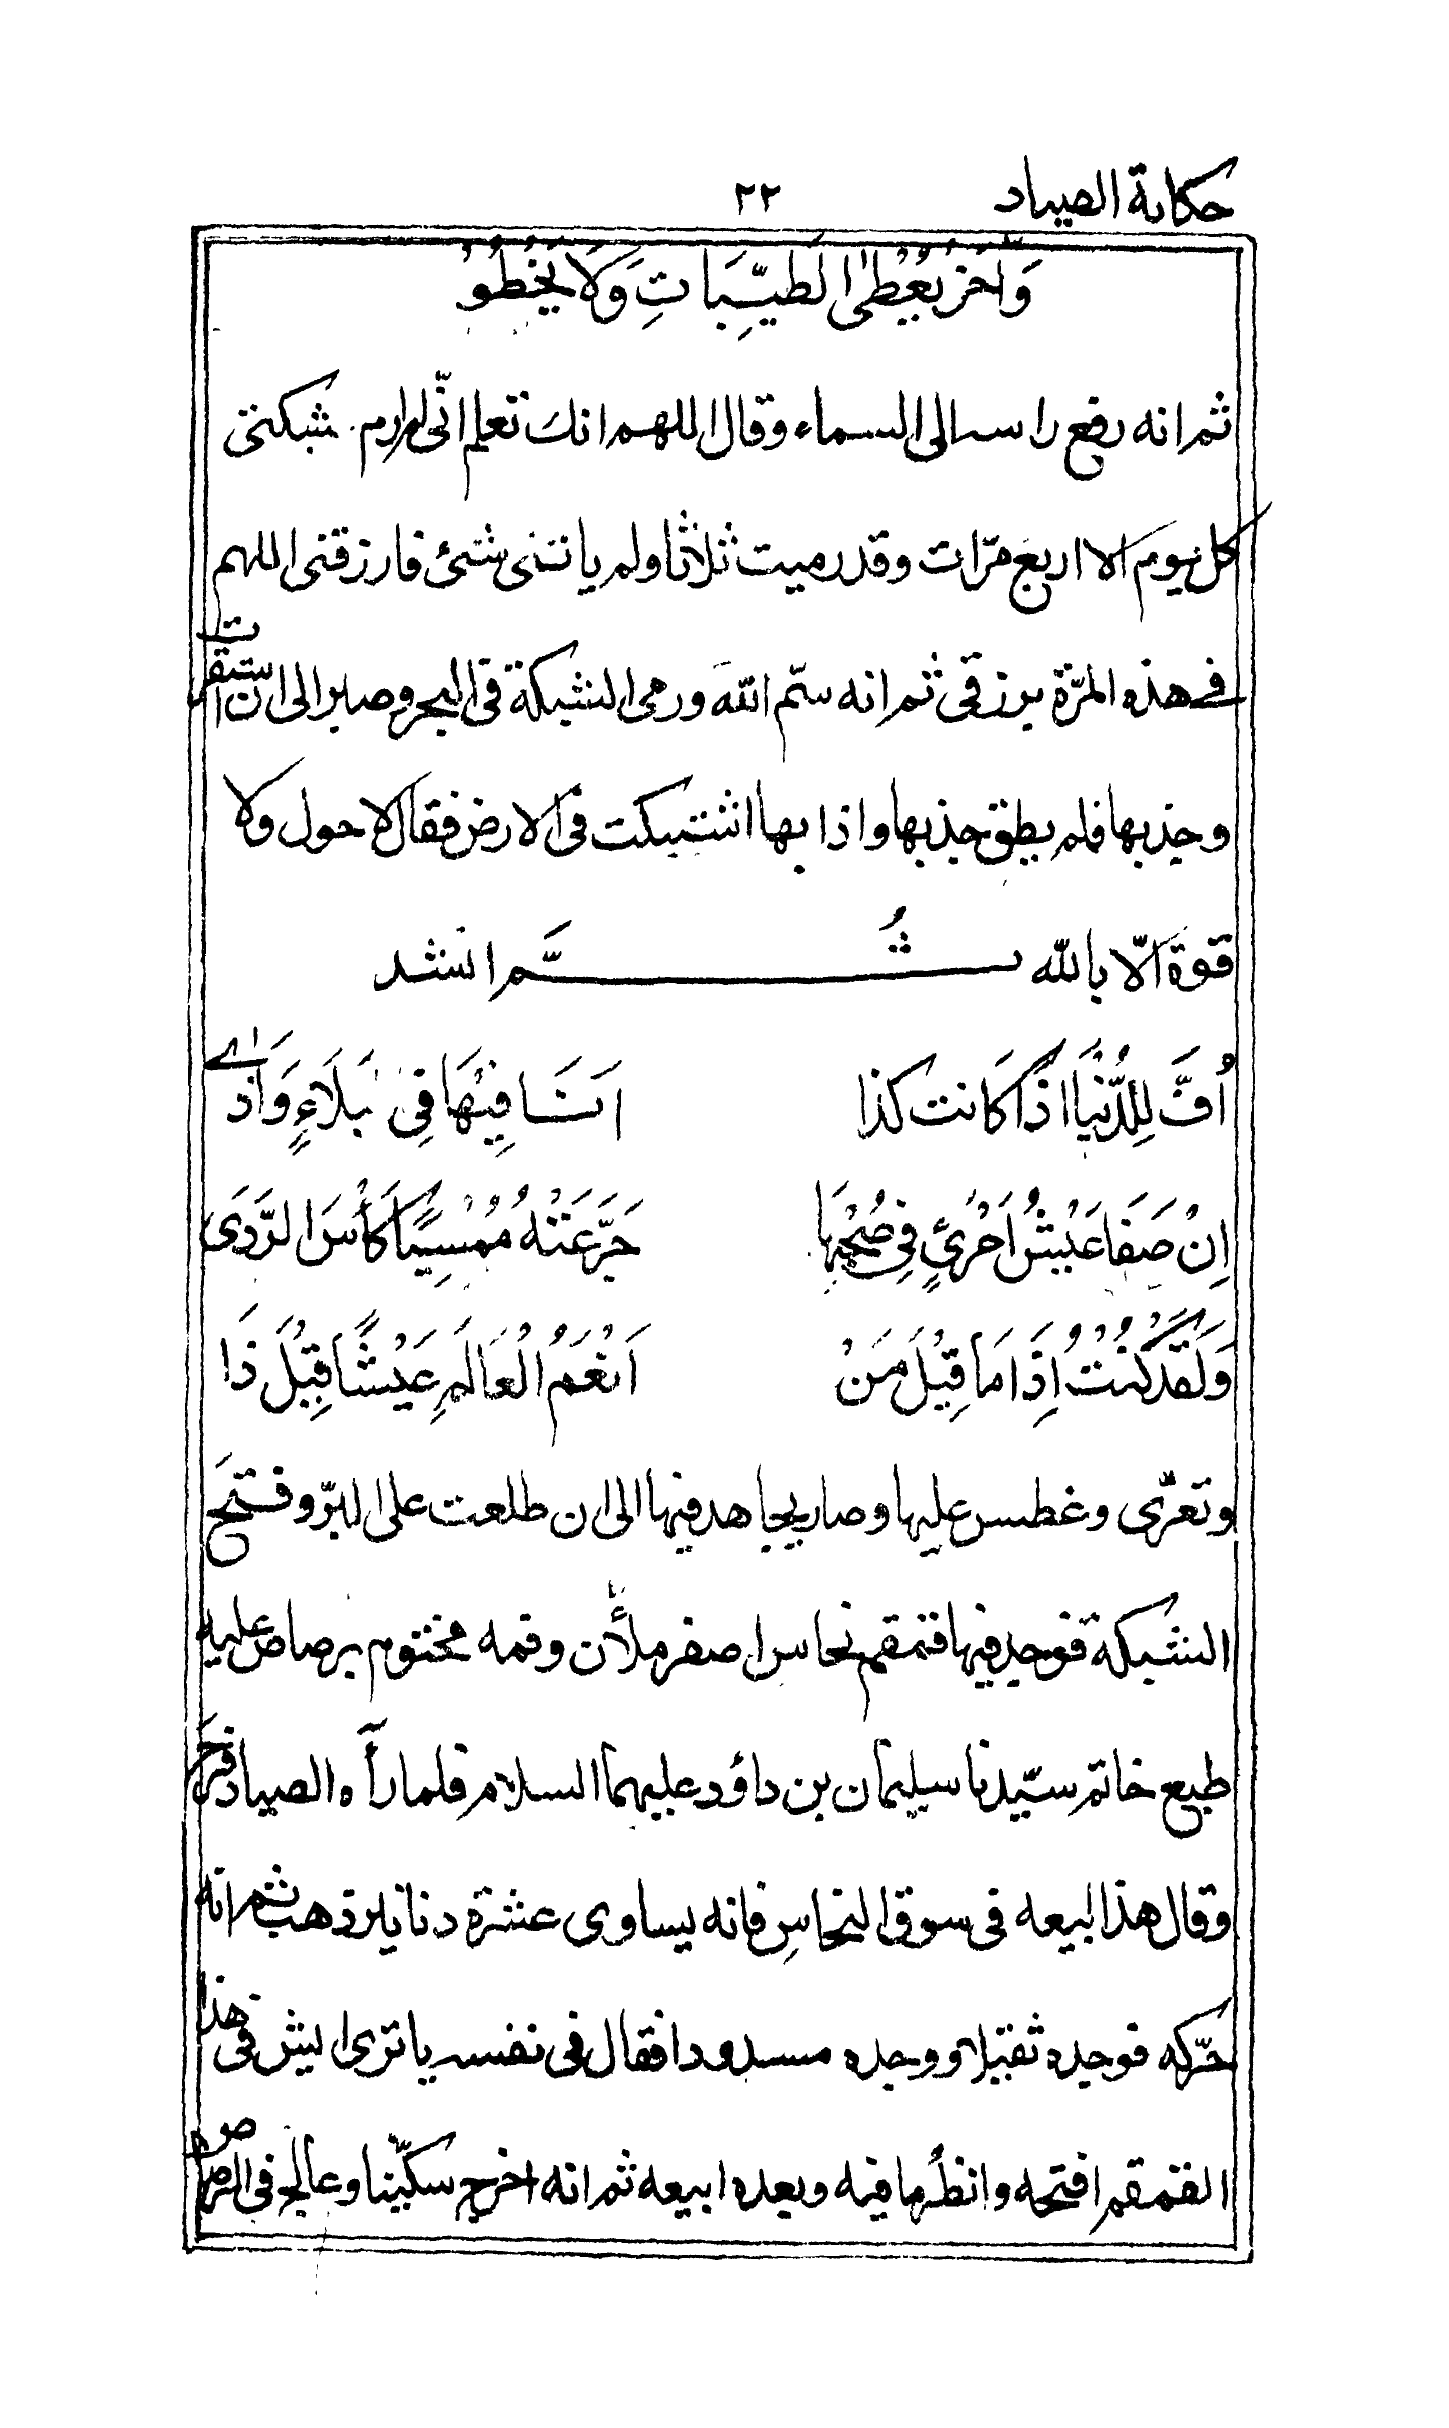 حكاية الصياد ٢٢
وَاٰخَرُ يُعْطٰى الطَيِّبَاتِ وَلَا يَخْطُو
ثم انه رفع راسه الى السماء وقال اللهم انك تعلم انّى لم ارم شبكتى
كل يوم الا اربع مرّات وقد رميت ثلاثا ولم ياتنى شئ فارزقنى اللهم
فى هذه المرّة برزقى ثم انه سمّ الله ورمى الشبكة فى البحر وصابر الى ان استقرت
وجذبها فلم يطق جذبها واذا بها اشتبكت فى الارض فقال لا حول ولا
قوة الّا بالله ثُــمَّ انشد
اُفَّ لِلدُّنْيَا اذَا كَانت كذا اَنَــا فِيْهَا فِى بَلَاءٍ وَاَذٰے
اِنْ صَفَا عَيْشُ اَمْرِئٍ فِى صُبْحِهَا جَرَّعَتْهُ مُمْسِيًا كَأْسَ الرَّدَى
وَلَقَدْ كُنْتُ اِذَا مَا قِيْلَ مَنْ اَنْعَمُ الْعَالَمِ عَيْشًا قِيْلَ ذَا
وتعرّى وغطس عليها وصار يجاهد فيها الى ان طلعت على البرّ وفتح
الشبكة فوجد فيها قمقم نحاس اصفر ملأن وفمه مختوم برصاص عليه
طبع خاتم سيّدنا سليمان بن داؤد عليهما السلام فلما رأه الصياد فرح
وقال هذا ابيعه فى سوق النحاس فانه يساوى عشرة دنانير ذهب ثم انه
حرّكه فوجده ثقيلا ووجده مسدودا فقال فى نفسه يا ترى ايش فى هذا
القمقم افتحه وانظُر ما فيه وبعده ابيعه ثم انه اخرج سكّينا وعالج فى الرصاص